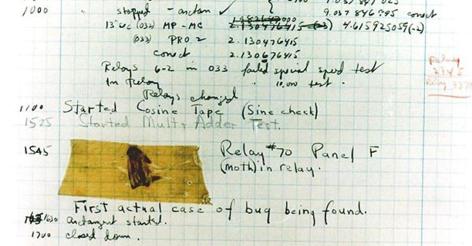 9.037 847 025
1000 " stopped - arctan ✓ 9.037 846 995 correct
13"uc (032) MP-MC 4.615925059(-2)
(033) PRO 2 2.130476415
correct 2.130676415
Relays 6-2 in 033 failed special speed test
In Relay " 10,000 test.
Relays changed
Relay
2145
Relay 3370
1100 Started Cosine Tape (Sine check)
1525 Started Mult+Adder Test.
1545 Relay #70 Panel F
(Moth) in relay.
First actual case of bug being found.
1630 antangent started.
1700 closed down.